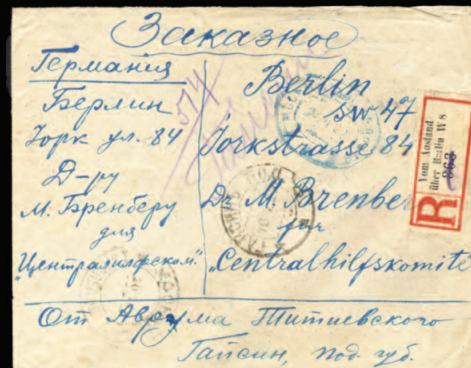 Заказное
Германия
Берлин
Iорк ул. 84
Д-ру
М. Бренберу
для
"Централилфском."
Berlin
SW 47
Jorkstrasse 84
Dr M. Brenber
für
"Centralhilfskomité
Vom Ausland
über Berlin W 8
863
R
574
От Аврума Титиевского
Гайсин, под. губ.